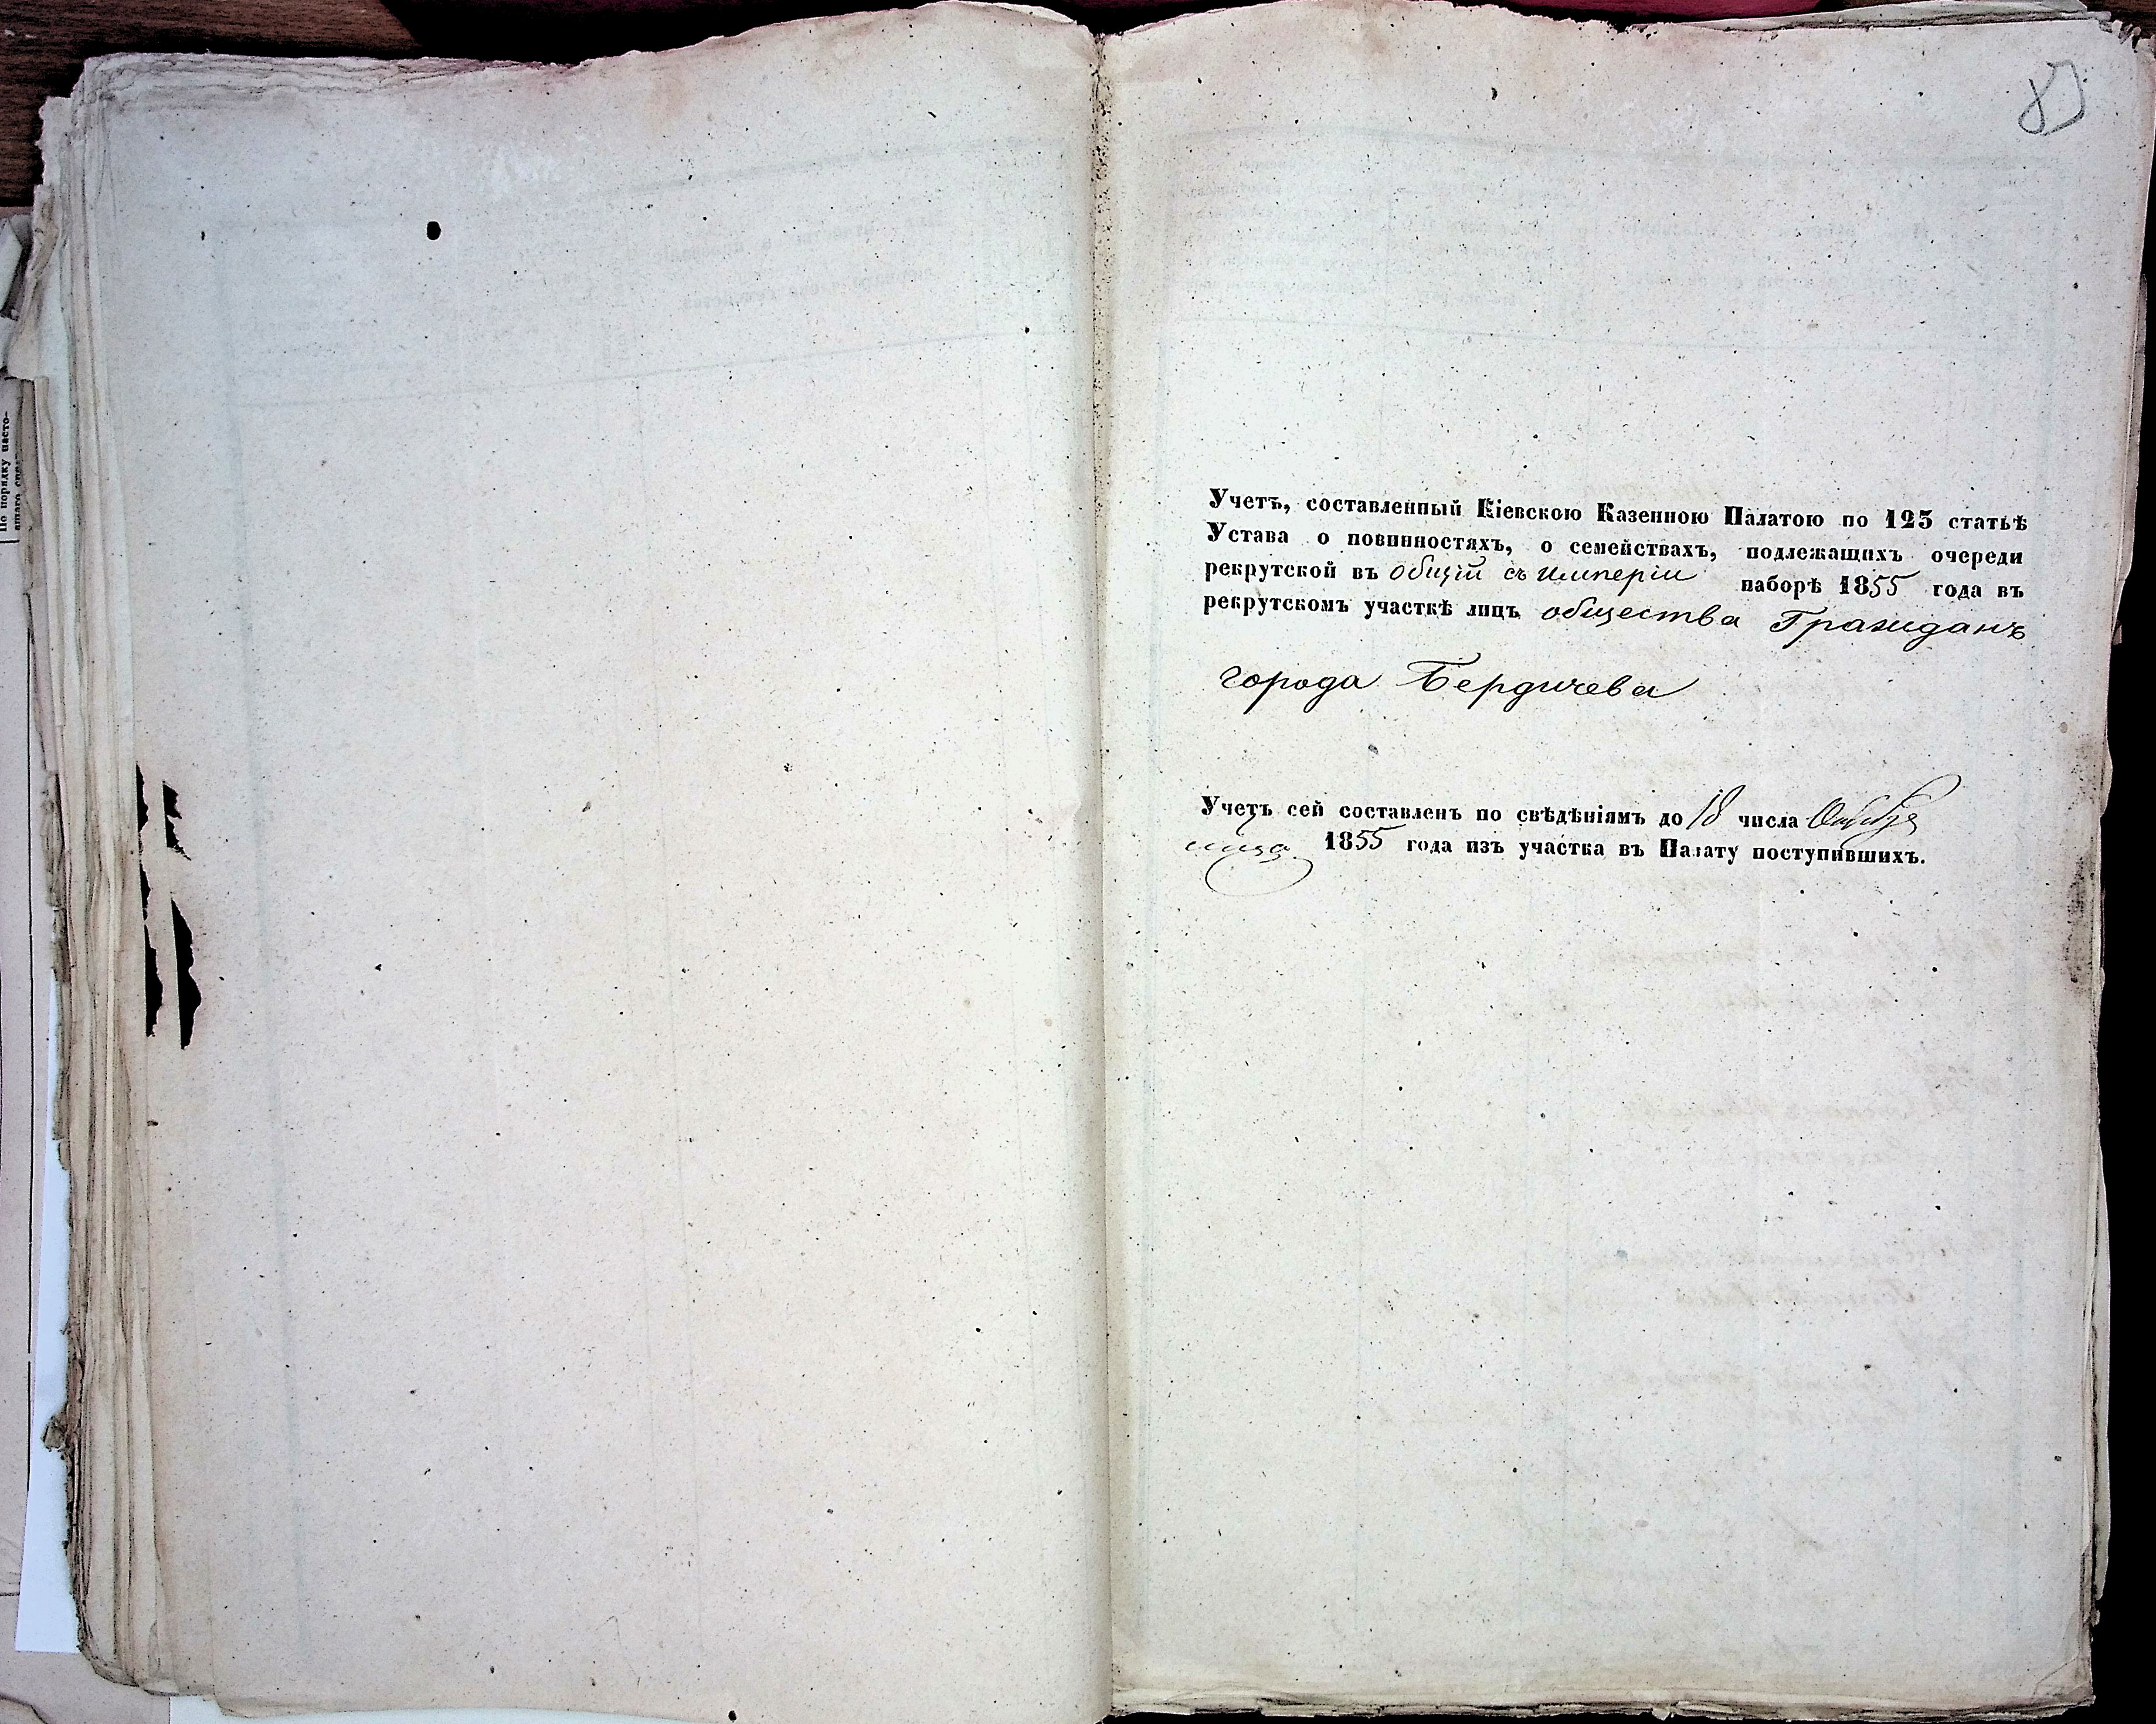 По порядку насто-
Учетъ, составленный Кіевскою Казенною Палатою по 125 статьѣ
Устава о повинностяхъ, о семействахъ, подлежащихъ очереди
рекрутской въ общій съ Имперіи наборѣ 1855 года въ
рекрутскомъ участкѣ лицъ общества Гражданъ
города Бердичева
Учетъ сей составленъ по свѣдѣніямъ до 18 числа
1855 года изъ участка въ Палату поступившихъ.